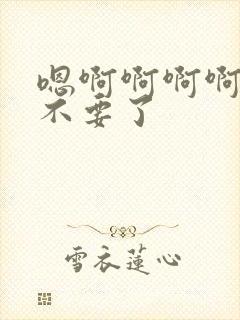 嗯啊啊啊啊
不要了
雪衣莲心